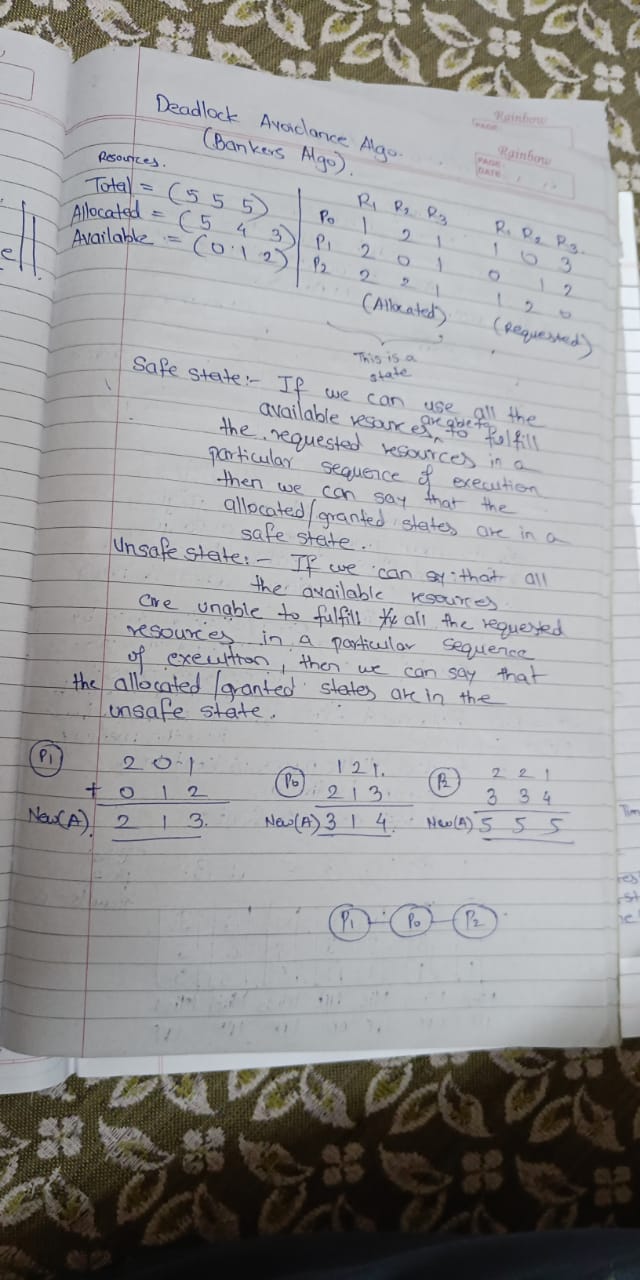 Rainbow
PAGE:
Rainbow
PAGE
DATE
Deadlock Avoidance Algo.
(Bankers Algo).
Resources.
Total = (5 5 5)
Allocated = (5 4 3)
Available = (0 1 2)
R1 R2 R3
P0 1 2 1
P1 2 0 1
P2 2 2 1
(Allocated)
R1 R2 R3.
1 0 3
0 1 2
1 2 0
(Requested)
This is a
state
Safe state:- If we can use all the
available resources are able to to fulfill
the requested resources in a
particular sequence of execution
then we can say that the
allocated/granted states are in a
safe state.
Unsafe state:- If we can say that all
the available resources
are unable to fulfill the all the requested
resources in a particular sequence
of execution, then we can say that
the allocated/granted states are in the
unsafe state.
P1 2 0 1
+ 0 1 2
New(A). 2 1 3.
P0 1 2 1.
2 1 3.
New(A) 3 1 4.
P2 2 2 1
3 3 4
New(A) 5 5 5
P1 - P0 - P2